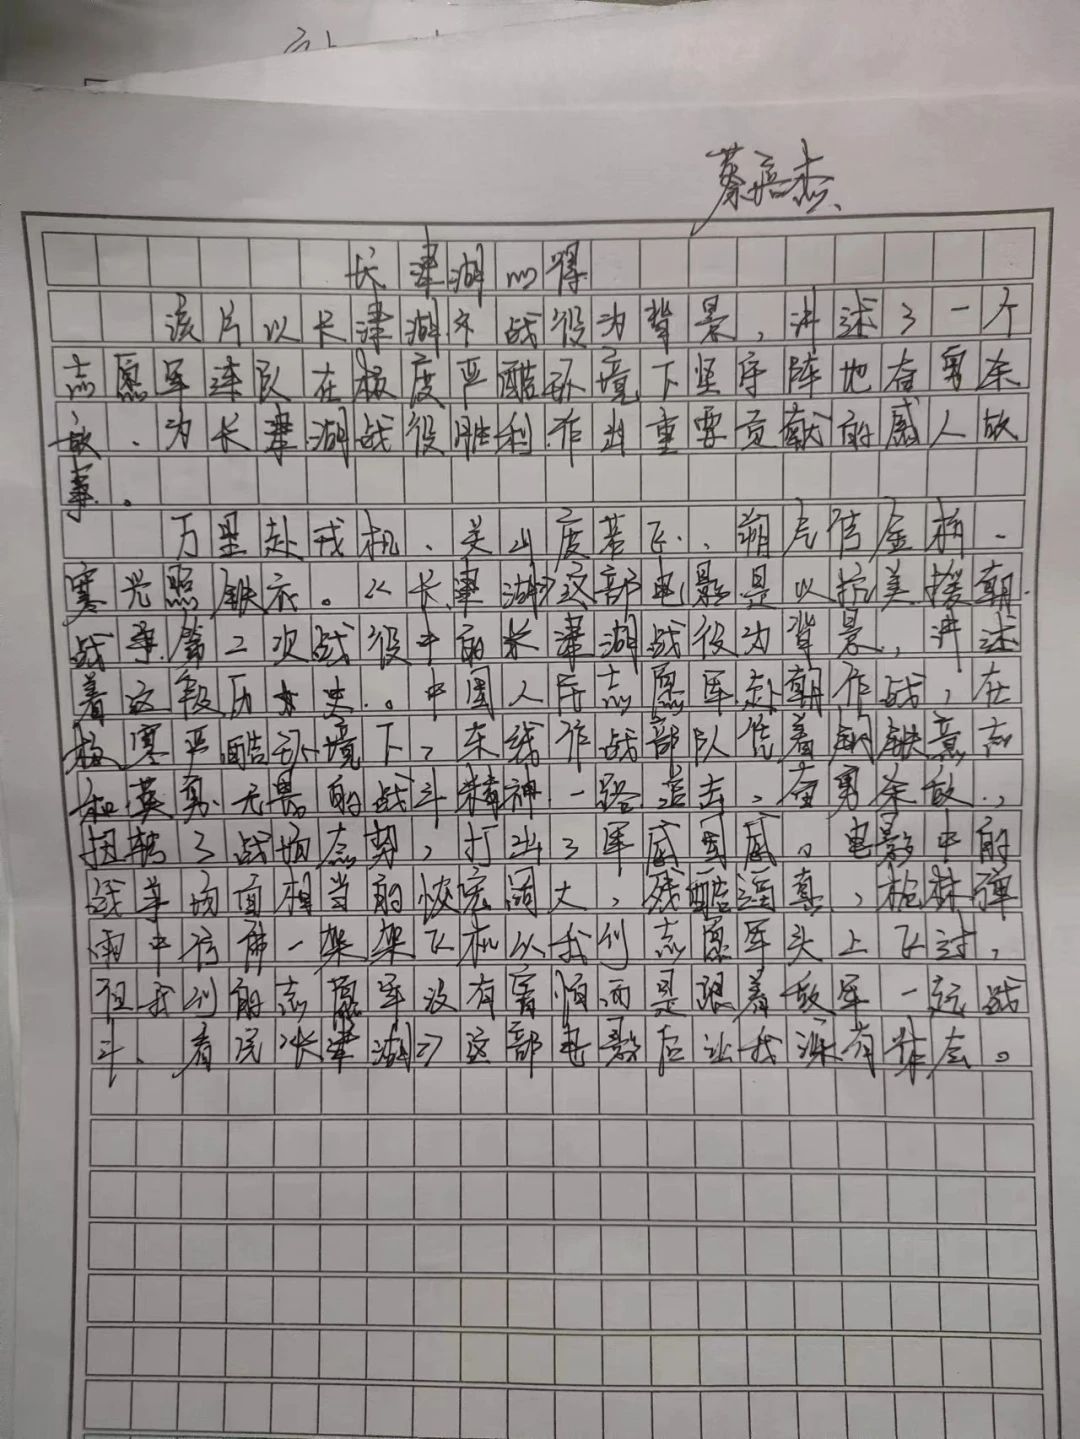 蔡培杰
长津湖心得
该片以长津湖战役为背景，讲述了一个
志愿军连队在极度严酷环境下坚守阵地奋勇杀
敌、为长津湖战役胜利作出重要贡献的感人故
事。
万里赴戎机、关山度若飞、朔气传金柝、
寒光照铁衣。《长津湖》这部电影是以抗美援朝
战争第二次战役中的长津湖战役为背景，讲述
着这段历史。中国人民志愿军赴朝作战，在
极寒严酷环境下，东线作战部队凭着钢铁意志
和英勇无畏的战斗精神一路追击，奋勇杀敌，
扭转了战场态势，打出了军威国威。电影中的
战争场面相当的恢宏阔大，残酷逼真，枪林弹
雨中仿佛一架架飞机从我们志愿军头上飞过，
但我们的志愿军没有害怕而是跟着敌军一起战
斗、看完《长津湖》这部电影后让我深有体会。